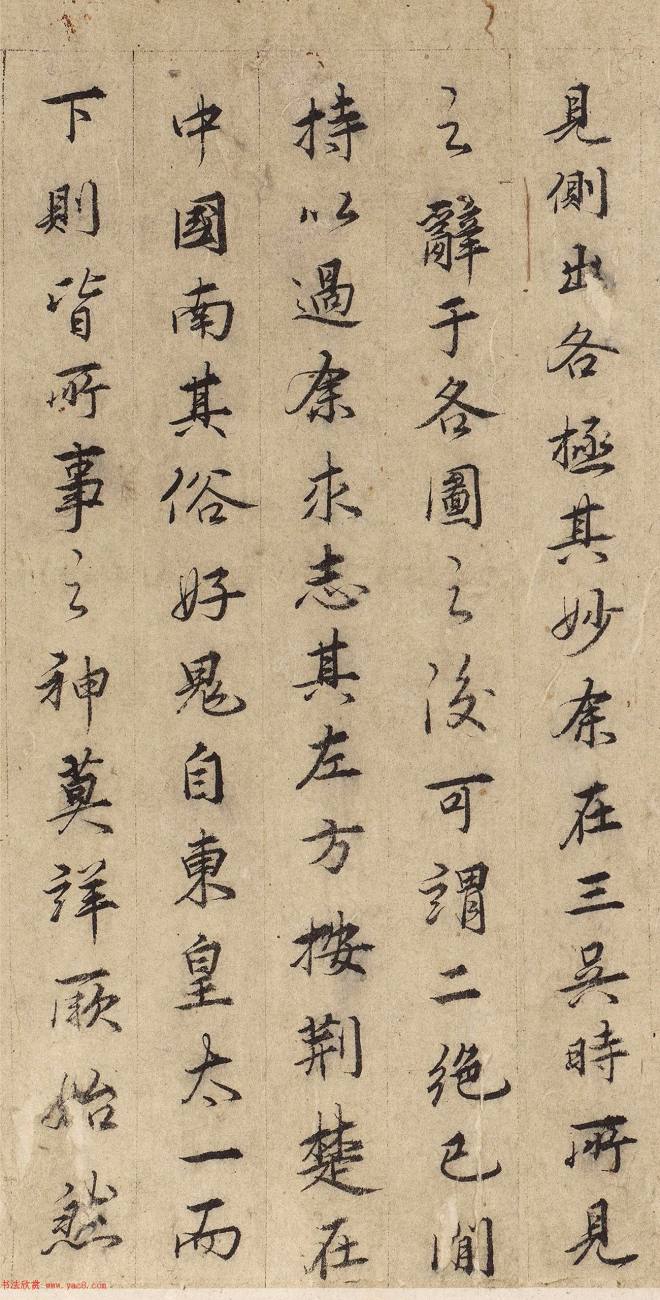 見側出各極其妙余在三吳時所見
之辭于各圖之後可謂二絕已閒
持以過余求志其左方按荆楚在
中國南其俗好鬼自東皇太一而
下則皆所事之神莫詳厥始然
书法欣赏 www.yac8.com